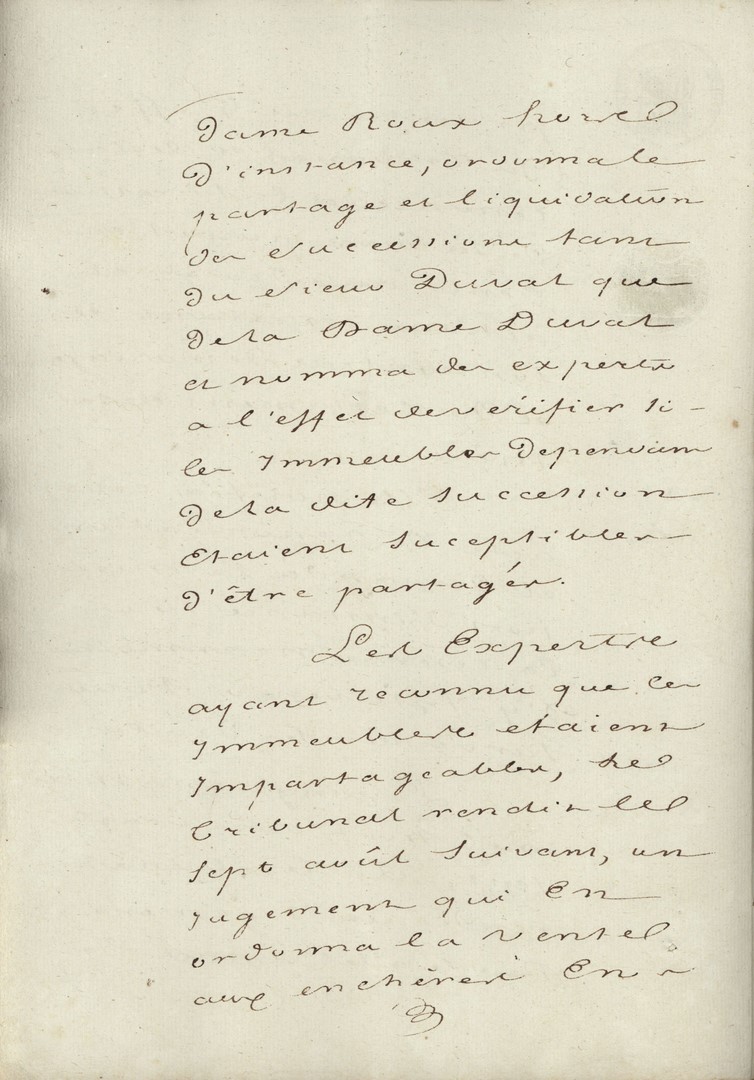 Dame Roux hors
D'instance, ordonna le
partage et liquidation
des Successions tant
du Sieur Duval que
de la Dame Duval
et nomma des experts
a l'effèt de vérifier si -
les Immeubles Dependant
de la dite Succession
Etaient Suceptibles
D'être partagés.
Les Experts
ayant reconnu que les
Immeubles etaient
Impartageables, le
Tribunal rendit le
Sept août Suivant, un
Jugement qui En
ordonna la vente
aux enchères En